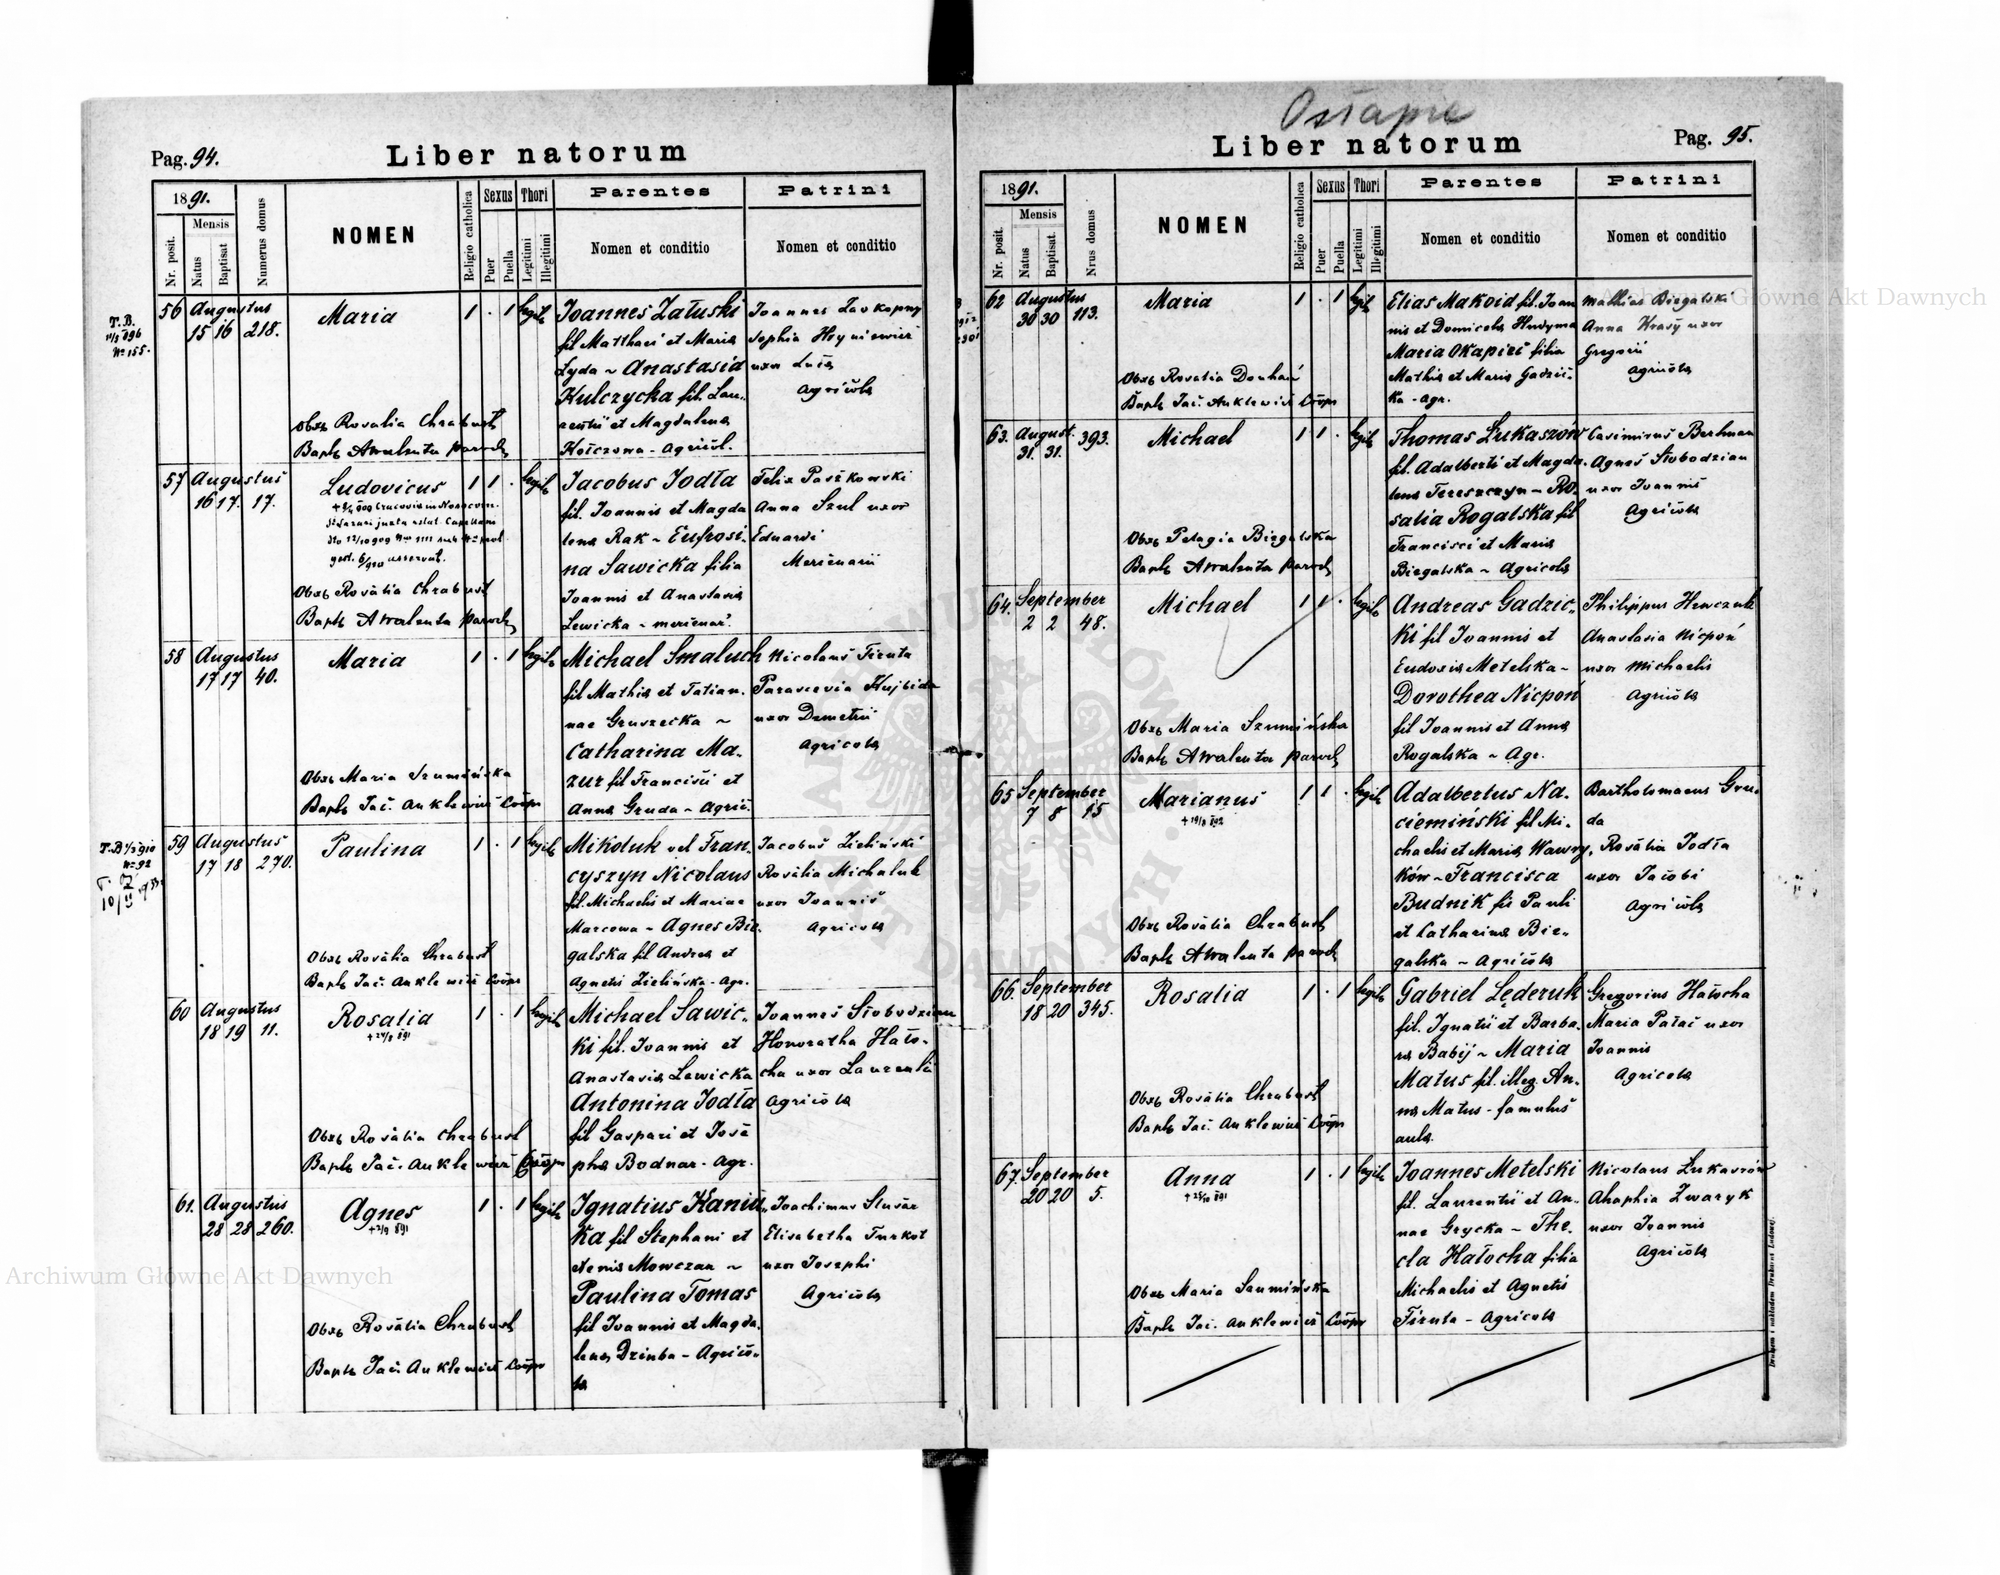 Ostapie
Pag. 94.
Liber natorum
1891.
Nr. posit.
Mensis
Natus
Baptisat
Numerus domus
NOMEN
Religio catholica
Sexus
Puer
Puella
Thori
Legitimi
Illegitimi
Parentes
Nomen et conditio
Patrini
Nomen et conditio
T.B.
No 155.
56 Augustus
15 16 218.
Maria
1 . 1 legit.
Joannes Załuski
fil Matthaei et Maria
Lyda ~ Anastasia
Kulczycka fil. Lau-
rentii et Magdalena
Kołczowa - Agricol.
Joannes Zakopny
Sophia
uxor Luca
Agricola
Obst Rosalia Chrabust
Bapt. A Walenta paroch
57 Augustus
16 17. 17.
Ludovicus
1 1 . legit.
Jacobus Jodła
fil. Joannis et Magda
lena Rak ~ Eufrosi-
na Sawicka filia
Joannis et Anastasia
Lewicka ~ mercenar.
Felix Paszkowski
Anna Szul uxor
Eduardi
Mercenarii
Obst Rosalia Chrabust
Bapt. A Walenta paroch
58 Augustus
17 17 40.
Maria
1 . 1 legit.
Michael Smaluch
fil Mathia et Tatian-
nae Gruszecka ~
Catharina Ma-
zur fil Francisci et
Anna Gruda ~ Agric.
Nicolaus Tiruta
Parascevia Hujbida
uxor Demetrii
Agricola
Obst Maria Szumińska
Bapt Jac. Anklewicz Coop
No 92
59 Augustus
17 18 270.
Paulina
1 . 1 legit.
Mikoluk vel Fran-
cyszyn Nicolaus
fil. Michaelis et Mariae
Marcowa ~ Agnes Bie-
galska fil Andrea et
Agnetis Zielińska - Agr.
Jacobus Zieliński
Rosalia Michaluk
uxor Joannis
Agricola
Obst Rosalia Chrabust
Bapt. Jac. Anklewicz Coop
60 Augustus
18 19 11.
Rosalia
1 . 1 legit.
Michael Sawic-
ki fil. Joannis et
Anastasia Lewicka
Antonina Jodła
fil Gaspari et Jose
pha Bodnar - Agr.
Joannes Słobodzian
Honoratha Hało-
cha uxor Laurentii
Agricola
Obst Rosalia Chrabust
Bapt. Jac. Anklewicz Coop
61. Augustus
28 28 260.
Agnes
1 . 1 legit.
Ignatius Kania-
ka fil Stephani et
Paulina Tomas
fil Joannis et Magda-
lena Dziuba - Agrico-
la
Joachimus Slusar
Elisabetha Turkot
uxor Josephi
Agricola
Obst Rosalia Chrabust
Bapt. Jac. Anklewicz Coop
Liber natorum
Pag. 95.
1891.
Nr. posit.
Mensis
Natus
Baptisat.
Nrus domus
NOMEN
Religio catholica
Sexus
Puer
Puella
Thori
Legitimi
Illegitimi
Parentes
Nomen et conditio
Patrini
Nomen et conditio
62 Augustus
30 30 113.
Maria
1 . 1 legit.
Elias Makoid fil. Joan
nis et Domicela Hudyma
Maria Okapiec filia
Mathia et Maria Gadzic-
ka - agr.
Mathias Biegalski
Anna Krasy uxor
Gregorii
Agricola
Obst Rosalia Douhań
Bapt. Jac. Anklewicz Coop
63. August.
31. 31. 393.
Michael
1 1 . legit.
Thomas Łukaszów
fil. Adalberti et Magda-
lena Tereszczyn ~ Ro-
salia Rogalska fil
Francisci et Maria
Biegalska ~ Agricola
Casimirus Berhman
Agnes Słobodzian
uxor Joannis
Agricola
Obst Pelagia Biegalska
Bapt. A Walenta paroch
64. September
2 2 48.
Michael
1 1 . legit.
Andreas Gadzic-
ki fil Joannis et
Eudoxia Metelska ~
Dorothea Nicpoń
fil Joannis et Anna
Rogalska ~ Agr.
Philippus Hewczuk
Anastasia Nicpoń
uxor Michaelis
Agricola
Obst Maria Szumińska
Bapt. A Walenta paroch
65 September
7 8 15
Marianus
1 1 . legit.
Adalbertus Na-
ciemiński fil Mi-
chaelis et Maria Wawry-
ków ~ Francisca
Budnik fil Pauli
et Catharina Bie-
galska ~ Agricola
Bartholomaeus Gru-
da
Rosalia Jodła
uxor Jacobi
Agricola
Obst Rosalia Chrabust
Bapt. A Walenta paroch
66. September
18 20 345.
Rosalia
1 . 1 legit.
Gabriel Lederuk
fil. Ignatii et Barba-
ra Babij ~ Maria
Matus fil. illeg. An-
na Matus - famulus
aula.
Gregorius Hałocha
Maria Pałac uxor
Joannis
Agricola
Obst Rosalia Chrabust
Bapt. Jac. Anklewicz Coop
67. September
20 20 5.
Anna
1 . 1 legit.
Joannes Metelski
fil. Laurentii et An-
nae Grycka ~ The-
cla Hałocha filia
Michaelis et Agnetis
Tiruta - Agricola
Nicolaus Łukaszów
Ahaphia Zwaryk
uxor Joannis
Agricola
Obst Maria Szumińska
Bapt. Jac. Anklewicz Coop
Archiwum Główne Akt Dawnych
Archiwum Główne Akt Dawnych